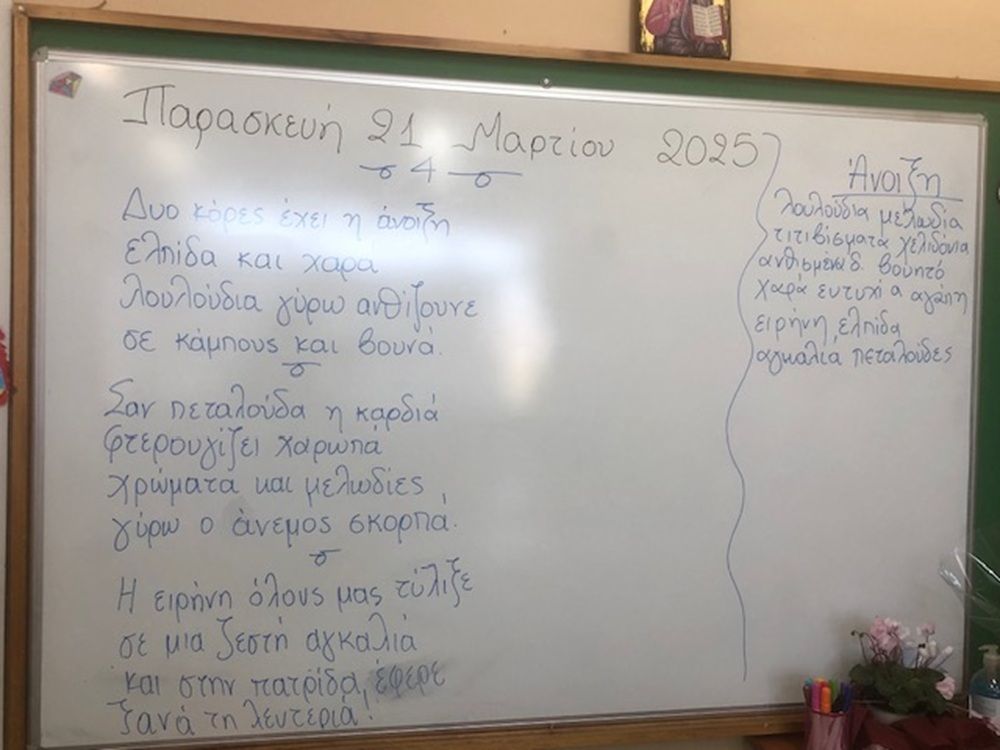 Παρασκευή 21 Μαρτίου 2025
4
Δυο κόρες έχει η άνοιξη
ελπίδα και χαρά
λουλούδια γύρω ανθίζουνε
σε κάμπους και βουνά.
Σαν πεταλούδα η καρδιά
φτερουγίζει χαρωπά
χρώματα και μελωδίες
γύρω ο άνεμος σκορπά.
Η ειρήνη όλους μας τύλιξε
σε μια ζεστή αγκαλιά
και στην πατρίδα έφερε
ξανά τη λευτεριά!
Άνοιξη
λουλούδια μελωδία
τιτιβίσματα χελιδόνια
ανθισμένα δ. βουητό
χαρά ευτυχία αγάπη
ειρήνη, ελπίδα
αγκαλιά πεταλούδες